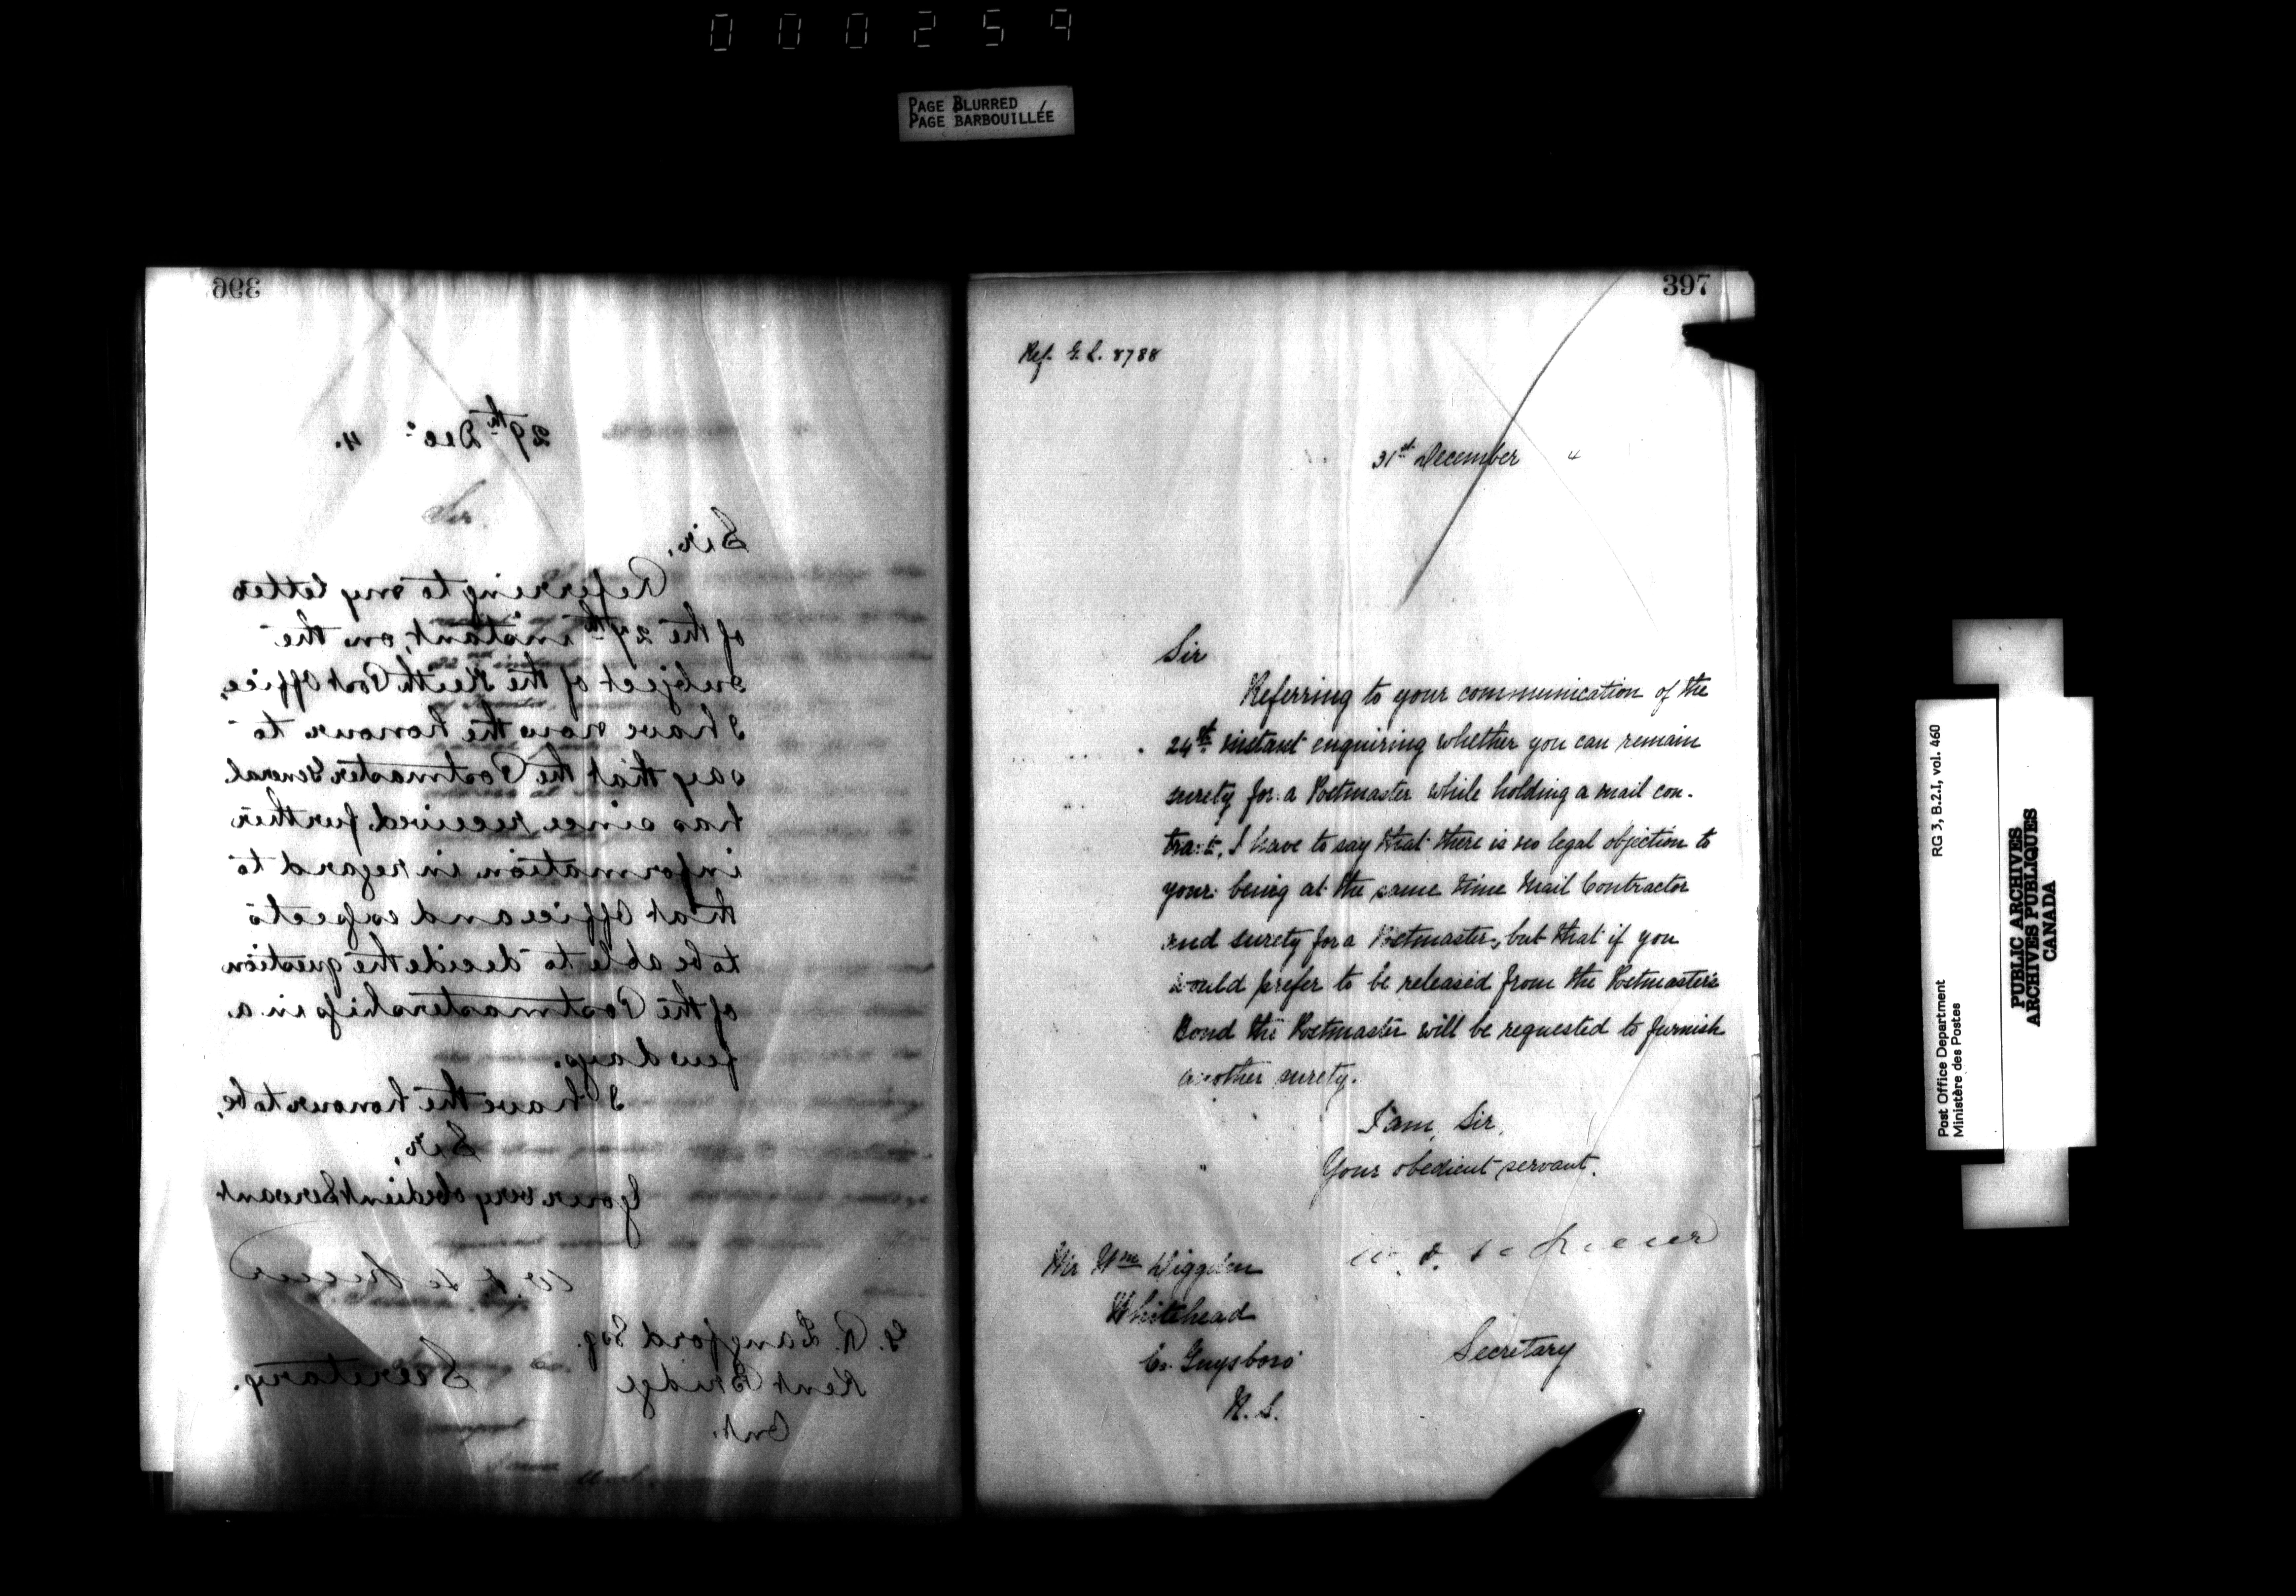 000259
PAGE BLURRED
PAGE BARBOUILLÉE
396
29th Dec. 4.
Sir,
Referring to my letter
of the 27th instant, on the
subject of the Keith Post Office,
I have now the honour to
say that the Postmaster General
has since received further
information in regard to
that Office and expects
to be able to decide the question
of the Postmastership in a
few days.
I have the honour to be,
Sir,
Your very obedient Servant
W. D. LeSueur
Secretary.
G. R. Langford Esq.
Kent Bridge
Ont.
397
Ref. G. L. 8788
31st December 4
Sir
Referring to your communication of the
24th instant enquiring whether you can remain
surety for a Postmaster while holding a mail con-
tract, I have to say that there is no legal objection to
your being at the same time Mail Contractor
and surety for a Postmaster, but that if you
would prefer to be released from the Postmaster's
Bond the Postmaster will be requested to furnish
another surety.
I am, Sir,
Your obedient servant.
W. D. LeSueur
Secretary
Mr Wm
Whitehead
Co. Guysboro'
N. S.
Post Office Department
Ministère des Postes
RG 3, B.2.I, vol. 460
PUBLIC ARCHIVES
ARCHIVES PUBLIQUES
CANADA